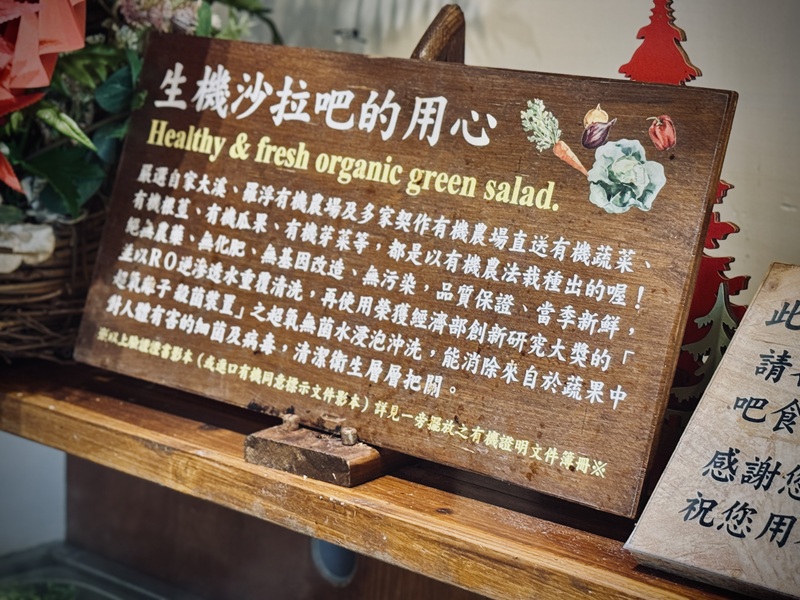 生機沙拉吧的用心
Healthy & fresh organic green salad.
嚴選自家大溪、羅浮有機農場及多家契作有機農場直送有機蔬菜、
有機根莖、有機瓜果、有機芽菜等，都是以有機農法栽種出的喔！
絕無農藥、無化肥、無基因改造、無污染，品質保證、當季新鮮，
並以RO逆滲透水重覆清洗，再使用榮獲經濟部創新研究大獎的「
超氧離子殺菌裝置」之超氧無菌水浸泡沖洗，能消除來自於蔬果中
對人體有害的細菌及病毒，清潔衛生層層把關。
※以上驗證證書影本（或進口有機同意標示文件影本）詳見一旁擺放之有機證明文件簿冊※
此
請
吧食
感謝您
祝您用